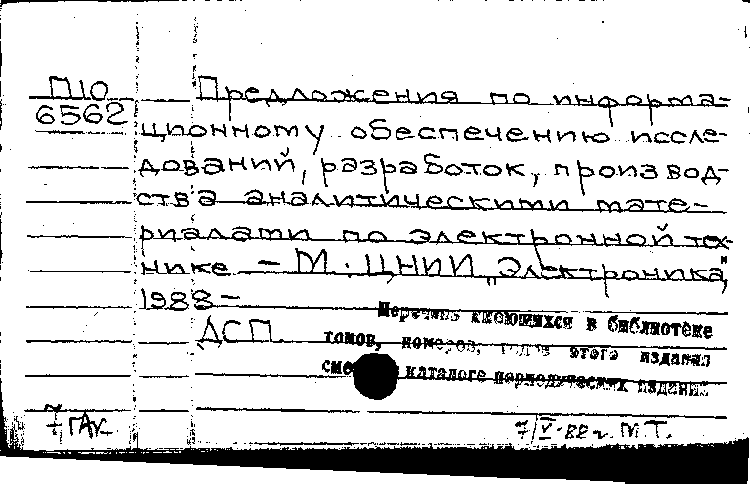 П10
6562
Предложения по информа-
ционному обеспечению иссле-
дований, разработок, производ-
ства аналитическими мате-
риалами по электронной тех-
нике – М. ЦНИИ „Электроника",
1988 –
ДСП.
Перечень имеющихся в библиотеке
томов, номеров, годов этого издания
каталоге периодических изданий
7/V-88 г. М.Т.